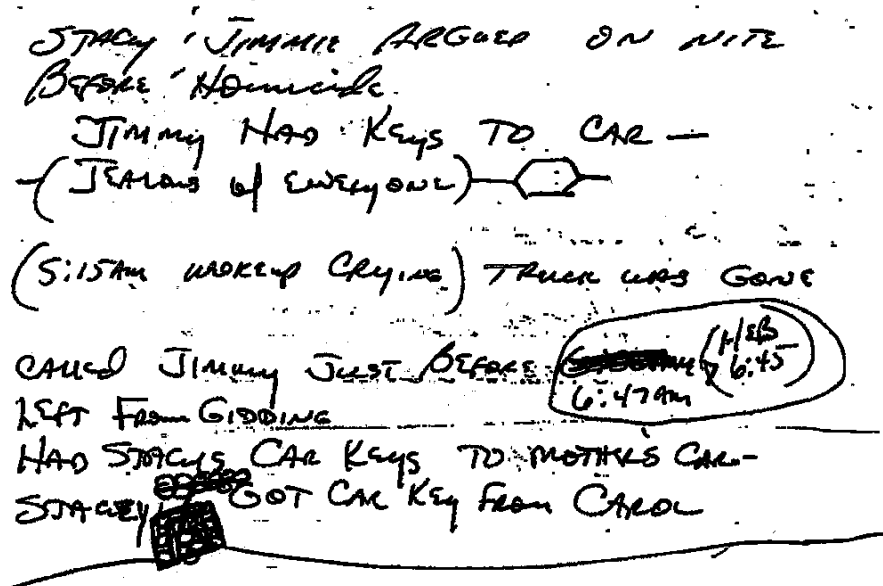 STACY & JIMMIE ARGUED ON NITE
BEFORE HOMICIDE.
JIMMY HAD KEYS TO CAR —
—(JEALOUS of EVERYONE)—
(5:15AM WOKEUP CRYING) TRUCK WAS GONE
CALLED JIMMY JUST BEFORE (HEB 6:45)
6:47AM
LEFT FROM GIDDING
HAD STACYS CAR KEYS TO MOTHERS CAR.-
STACEY GOT CAR KEY FROM CAROL